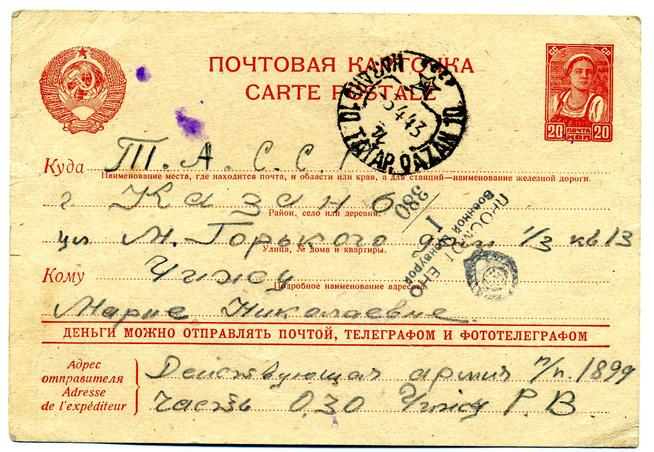 ПОЧТОВАЯ КАРТОЧКА
CARTE POSTALE
СС СР
20 ПОЧТА КОП 20
КАЗАНЬ 10
5 4 43
TATAR. QAZAN 10.
Куда Т.А.С.С.Р
Наименование места, где находится почта, и области или края, а для станций—наименование железной дороги.
г Казань
Район, село или деревня.
ул М. Горького дом 1/3 кв 13
Улица, № дома и квартиры.
ПРОСМОТРЕНО
Военной Цензурой
1
380
Кому Чижу
Подробное наименование адресата
Марие Николаевне
ДЕНЬГИ МОЖНО ОТПРАВЛЯТЬ ПОЧТОЙ, ТЕЛЕГРАФОМ И ФОТОТЕЛЕГРАФОМ
Адрес отправителя
Adresse de l'expéditeur
Действующая армия п/п. 1899
часть 030 Чижу Р.В.